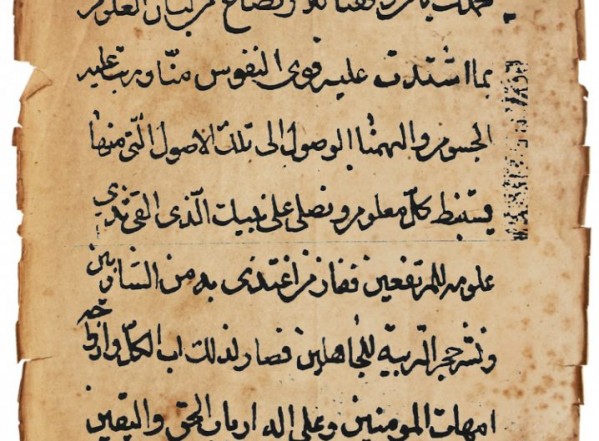 بما اشتدت عليه قوى النفوس منّا وربت عليه
الجسوم والهمنا الوصول الى تلك الاصول الّتي منها
يستنبط كلّ معلوم ونصلي على نبيك الّذى القى ثدي
علومه للمرتضعين ففاز من اغتذى به من السابقين
ونشر حجر التربية للجاهلين فصار لذلك اب الكلّ وازواجه
امهات المومنين وعلى اله ارباب الحق واليقين